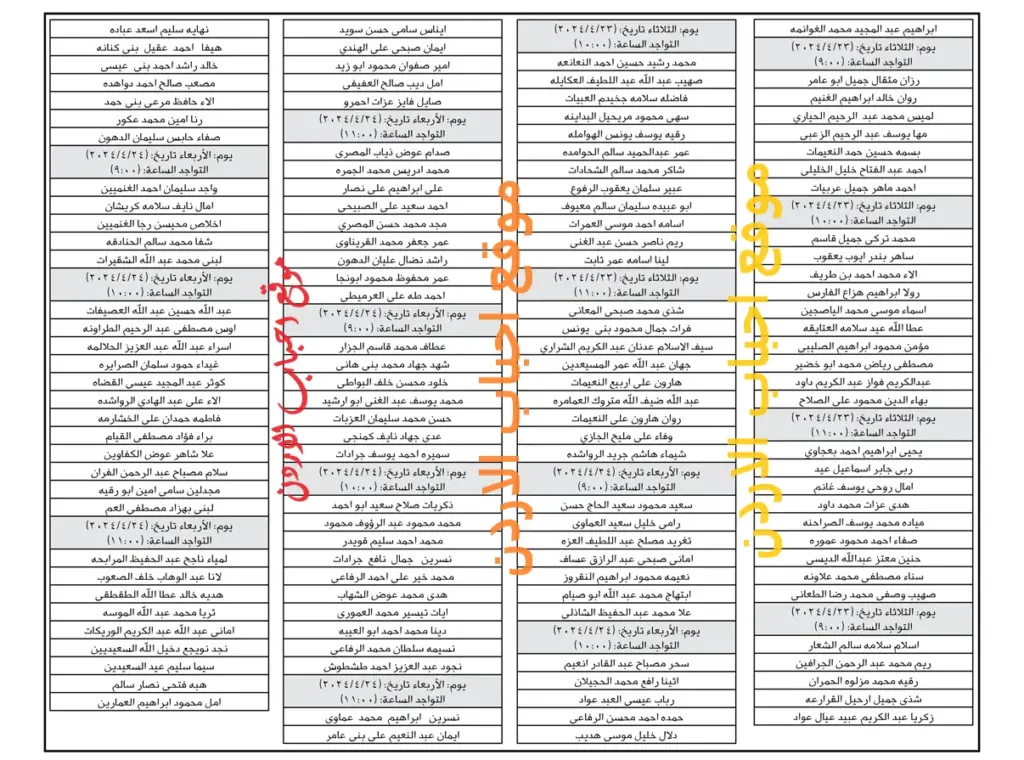 ابراهيم عبد المجيد محمد الغوانمه
يوم: الثلاثاء تاريخ: (٢٠٢٤/٤/٢٣)
التواجد الساعة: (٩:٠٠)
رزان مثقال جميل ابو عامر
روان خالد ابراهيم الغنيم
لميس محمد عبد الرحيم الحياري
مها يوسف عبد الرحيم الزعبي
بسمه حسين حمد النعيمات
احمد عبد الفتاح خليل الخليلى
احمد ماهر جميل عربيات
يوم: الثلاثاء تاريخ: (٢٠٢٤/٤/٢٣)
التواجد الساعة: (١٠:٠٠)
محمد تركى جميل قاسم
ساهر بندر ايوب يعقوب
الاء محمد احمد بن طريف
رولا ابراهيم هزاع الفارس
اسماء موسى محمد الياصجين
عطا الله عيد سلامه العتايقه
مؤمن محمود ابراهيم الصليبي
مصطفى رياض محمد ابو خضير
عبدالكريم فواز عبد الكريم داود
بهاء الدين محمود على الصلاح
يوم: الثلاثاء تاريخ: (٢٠٢٤/٤/٢٣)
التواجد الساعة: (١١:٠٠)
يحيى ابراهيم احمد بعجاوي
ربى جابر اسماعيل عيد
امال روحي يوسف غانم
هدى عزات محمد داود
مياده محمد يوسف الصراحنه
صفاء احمد محمود عموره
حنين معتز عبدالله الديسى
سناء مصطفى محمد علاونه
صهيب وصفى محمد رضا الطعانى
يوم: الثلاثاء تاريخ: (٢٠٢٤/٤/٢٣)
التواجد الساعة: (٩:٠٠)
اسلام سلامه سالم الشعار
ريم محمد عبد الرحمن الجرافين
رقيه محمد مزلوه الحمران
شذى جميل ارحيل القرارعه
زكريا عبد الكريم عبيد عيال عواد
يوم: الثلاثاء تاريخ: (٢٠٢٤/٤/٢٣)
التواجد الساعة: (١٠:٠٠)
محمد رشيد حسين احمد النعانعه
صهيب عبد الله عبد اللطيف العكايله
فاضله سلامه جخيدم العبيات
سهى محمود مريحيل البداينه
رقيه يوسف يونس الهوامله
عمر عبدالحميد سالم الحوامده
شاكر محمد سالم الشحادات
عبير سلمان يعقوب الرفوع
ابو عبيده سليمان سالم معيوف
اسامه احمد موسى العمرات
ريم ناصر حسن عبد الغنى
لينا اسامه عمر ثابت
يوم: الثلاثاء تاريخ: (٢٠٢٤/٤/٢٣)
التواجد الساعة: (١١:٠٠)
شذى محمد صبحي المعانى
فرات جمال محمود بنى يونس
سيف الاسلام عدنان عبد الكريم الشراري
جهان عبد الله عمر المسيعدين
هارون على اربيع النعيمات
عبد الله ضيف الله متروك العمامره
روان هارون على النعيمات
وفاء على مليح الجازي
شيماء هاشم جريد الرواشده
يوم: الأربعاء تاريخ: (٢٠٢٤/٤/٢٤)
التواجد الساعة: (٩:٠٠)
سعيد محمود سعيد الحاج حسن
رامى خليل سعيد العماوى
تغريد مصلح عبد اللطيف العزه
امانى صبحى عبد الرازق عساف
نعيمه محمود ابراهيم النقروز
ابتهاج محمد عبد الله ابو صيام
علا محمد عبد الحفيظ الشاذلى
يوم: الأربعاء تاريخ: (٢٠٢٤/٤/٢٤)
التواجد الساعة: (١٠:٠٠)
سحر مصباح عبد القادر انعيم
اثينا رافع محمد الحجيلان
رباب عيسى العبد عواد
حمده احمد محسن الرفاعى
دلال خليل موسى هديب
ايناس سامى حسن سويد
ايمان صبحى على الهندي
امير صفوان محمود ابو زيد
امل ديب صالح العفيفى
صايل فايز عزات احمرو
يوم: الأربعاء تاريخ: (٢٠٢٤/٤/٢٤)
التواجد الساعة: (١١:٠٠)
صدام عوض ذياب المصرى
محمد ادريس محمد الجمره
على ابراهيم على نصار
احمد سعيد على الصبيحى
مجد محمد حسن المصري
عمر جعفر محمد القريناوى
راشد نضال عليان الدهون
عمر محفوظ محمود ابونجا
احمد طه على العرميطى
يوم: الأربعاء تاريخ: (٢٠٢٤/٤/٢٤)
التواجد الساعة: (٩:٠٠)
عطاف محمد قاسم الجزار
شهد جهاد محمد بنى هانى
خلود محسن خلف البواطى
محمد يوسف عبد الغنى ابو ارشيد
حسن محمد سليمان العزبات
عدى جهاد نايف كمنجى
سميره احمد يوسف جرادات
يوم: الأربعاء تاريخ: (٢٠٢٤/٤/٢٤)
التواجد الساعة: (١٠:٠٠)
ذكريات صلاح سعيد ابو احمد
محمد محمود عبد الرؤوف محمود
محمد احمد سليم قويدر
نسرين جمال نافع جرادات
محمد خير على احمد الرفاعى
محمد عوض محمد الشهاب
ايات تيسير محمد العموري
دينا محمد احمد ابو العيبه
نسيمه سلطان محمد الرفاعى
نجود عبد العزيز احمد طشطوش
يوم: الأربعاء تاريخ: (٢٠٢٤/٤/٢٤)
التواجد الساعة: (١١:٠٠)
نسرين ابراهيم محمد عماوى
ايمان عبد النعيم على بنى عامر
نهايه سليم اسعد عباده
هيفا احمد عقيل بنى كنانه
خالد راشد احمد بنى عيسى
مصعب صالح احمد دواهده
الاء حافظ مرعى بنى حمد
رنا امين محمد عكور
صفاء حابس سليمان الدهون
يوم: الأربعاء تاريخ: (٢٠٢٤/٤/٢٤)
التواجد الساعة: (٩:٠٠)
واجد سليمان احمد الغنميين
امال نايف سلامه كريشان
اخلاص محيسن رجا الغنميين
شفا محمد سالم الحنادقه
لبنى محمد عبد الله الشقيرات
يوم: الأربعاء تاريخ: (٢٠٢٤/٤/٢٤)
التواجد الساعة: (١٠:٠٠)
عبد الله حسين عبد الله العصيفات
اوس مصطفى عبد الرحيم الطراونه
اسراء عبد الله عبد العزيز الخلالمه
غيداء حمود سلمان الصرايره
كوثر عبد المجيد عيسى القضاه
الاء على عبد الهادي الرواشده
فاطمه حمدان على الخشارمه
براء فؤاد مصطفى القيام
علا شاهر عوض الكفاوين
سلام مصباح عبد الرحمن الفران
مجدلين سامى امين ابو رقيه
لبنى بهزاد مصطفى العم
يوم: الأربعاء تاريخ: (٢٠٢٤/٤/٢٤)
التواجد الساعة: (١١:٠٠)
لمياء ناجح عبد الحفيظ المرابحه
لانا عبد الوهاب خلف الصعوب
هديه خالد عطا الله الطقطقى
ثريا محمد عبد الله الموسه
امانى عبد الله عبد الكريم الوريكات
نجد نويجع دخيل الله السعيديين
سيما سليم عيد السعيدين
هبه فتحى نصار سالم
امل محمود ابراهيم العمارين
موقع
الاردن
موقع
الاردن
موقع
الاردن